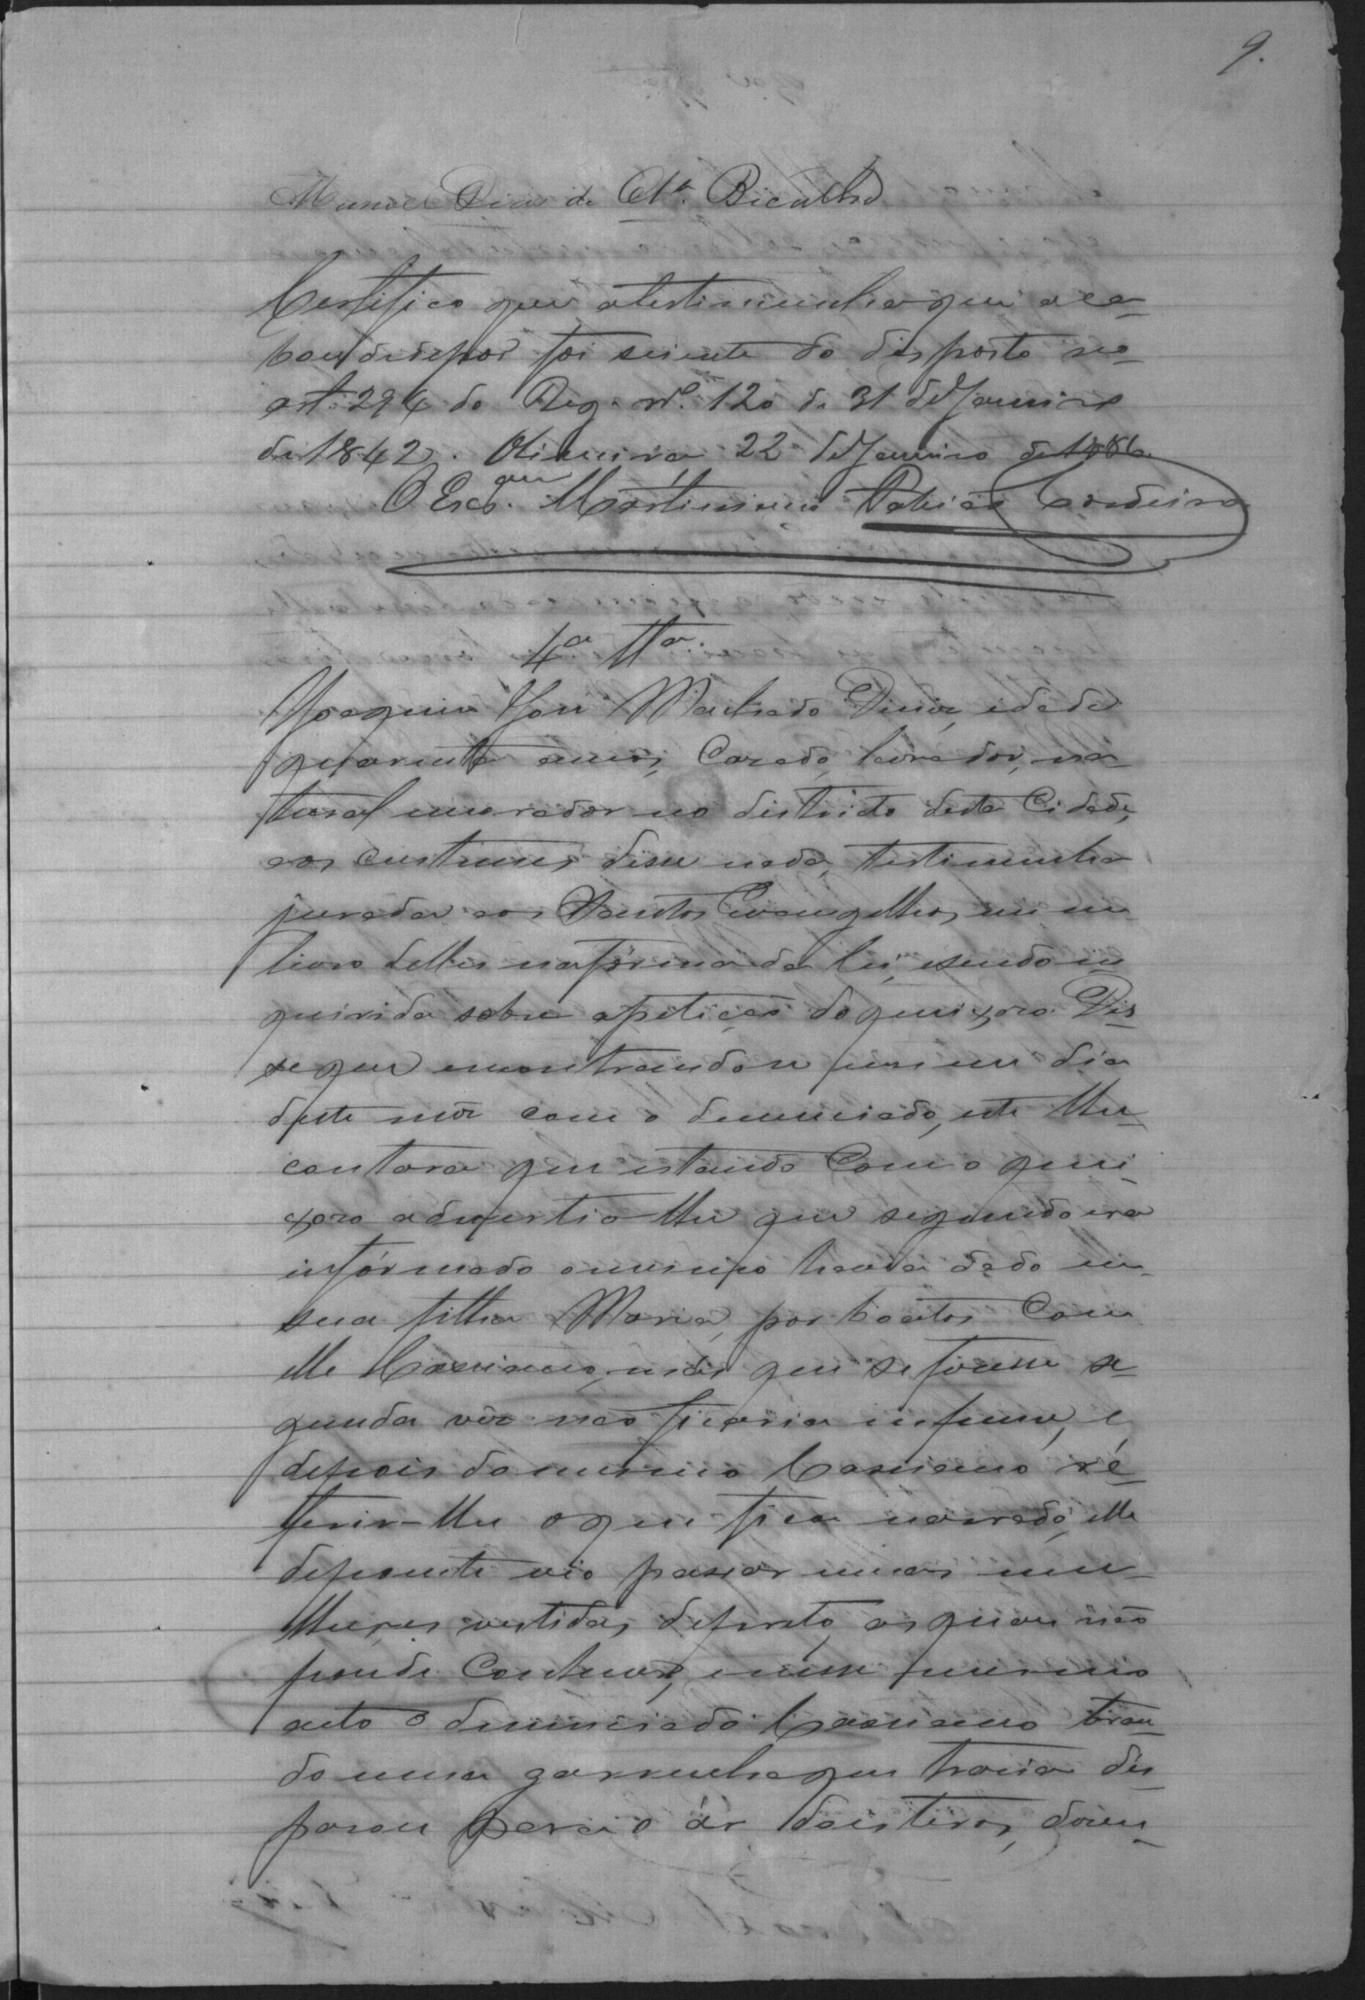 9.
Manoel Dias de Olª. Bicalho
Certifico que a testimunha que aca-
bou de depor foi sciente do disposto no
art. 294 do Reg. nº. 120 de 31 de Janeiro
de 1842. Oliveira 22 de Janeiro de 1886
O Escram. Martiniano Cordeiro
4ª Ttª.
Joaquim José Machado Diniz, idade
quarenta annos, Casado, lavrador, na-
tural morador no districto desta Cidade,
aos custumes disse nada, testimunha
jurada aos Santos Evangelhos, em um
livro delles na forma da lei, e sendo in
quirida sobre a petição do queixoso. Dis-
se que encontrandose em um dia
deste mez com o denunciado, este lhe
contara que estando Com o quei-
xoso advertio-lhe que segundo era
informado o mesmo havia dado em
sua filha Maria, por boatos Com
elle Cassiano, mas que se fosse se-
gunda vez não ficaria impune, e
depois do mesmo Cassiano re-
ferir-lhe o que fica narrado, elle
depoente vio passar umas mu-
lheres vestidas de preto, as quaes não
poude Conhecer, e nesse mesmo
acto o denunciado Cassiano tiran-
do uma garrucha que trazia dis-
parou para o ár dois tiros,